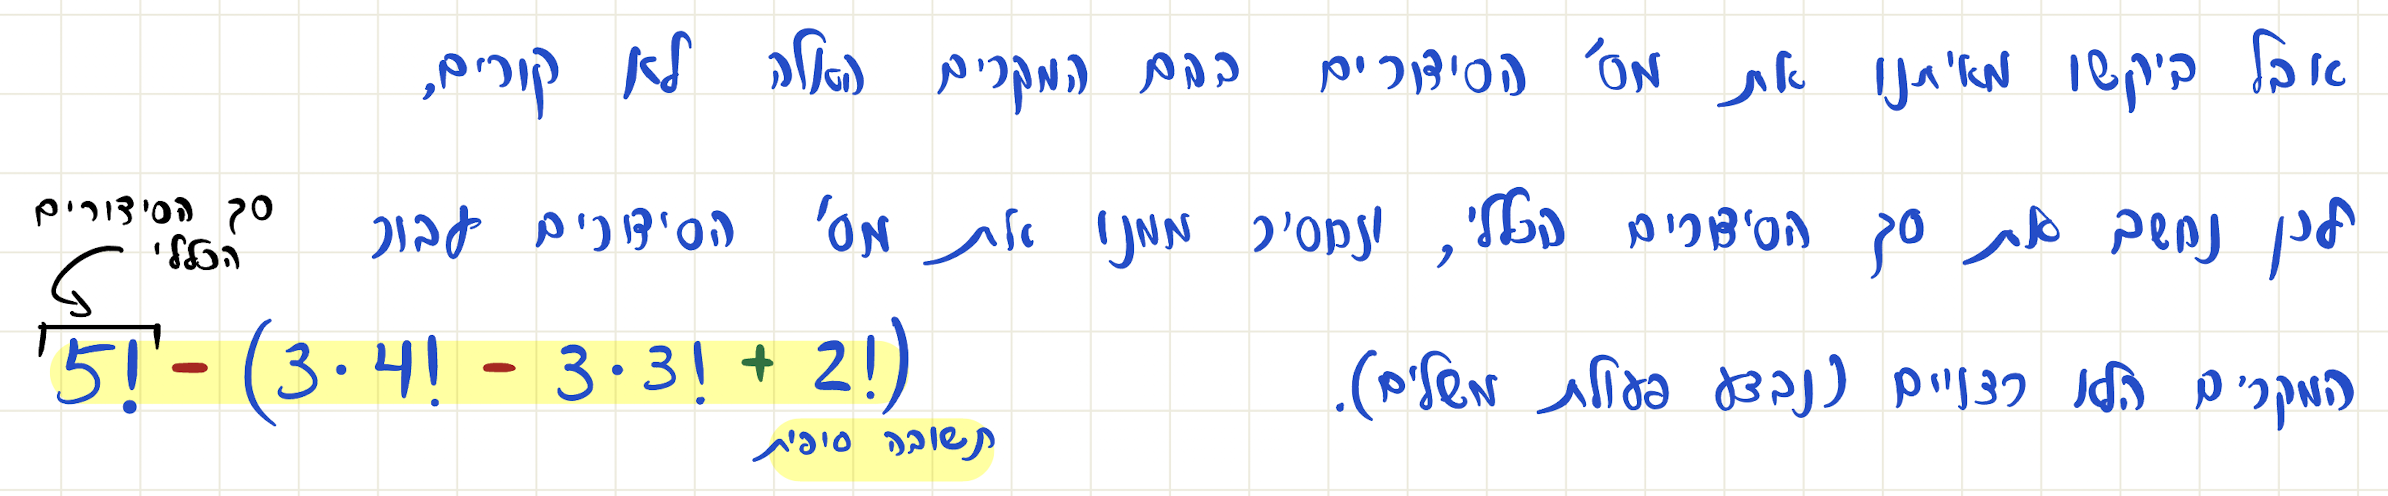 אבל ביקשו מאיתנו את מס' הסידורים בהם המקרים האלה לא קורים,
לכן נחשב את סך הסידורים הכללי, ונחסיר ממנו את מס' הסידורים עבור
סך הסידורים
הכללי
המקרים הלא רצויים (נבצע פעולת משלים).
5! - (3·4! - 3·3! + 2!)
תשובה סופית